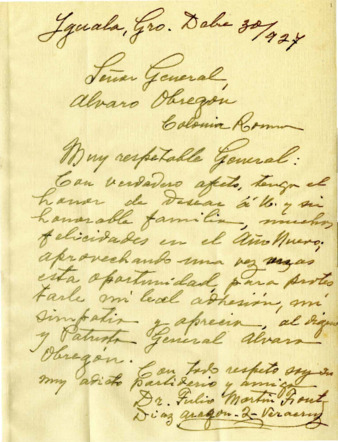 Iguala, Gro. Dbre 30/927
Señor General,
Alvaro Obregón
Colonia Roma
Muy respetable General:
Con verdadero afeto, tengo el
honor de desear á U. y su
honorable familia, muchas
felicidades en el Año Nuevo;
aprovechando una vez más
esta oportunidad para protes
tarle mi leal adhesión, mi
simpatia y aprecio, al digno
y Patriota General Alvaro
Obregon.
Con todo respeto soy su
muy adicto partidario y amigo
Dr. Julio Martín
Diaz Aragon-2-Veracruz